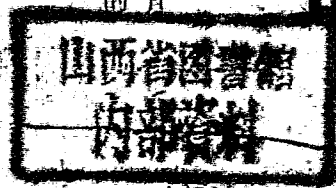 山西省图書館
内部資料